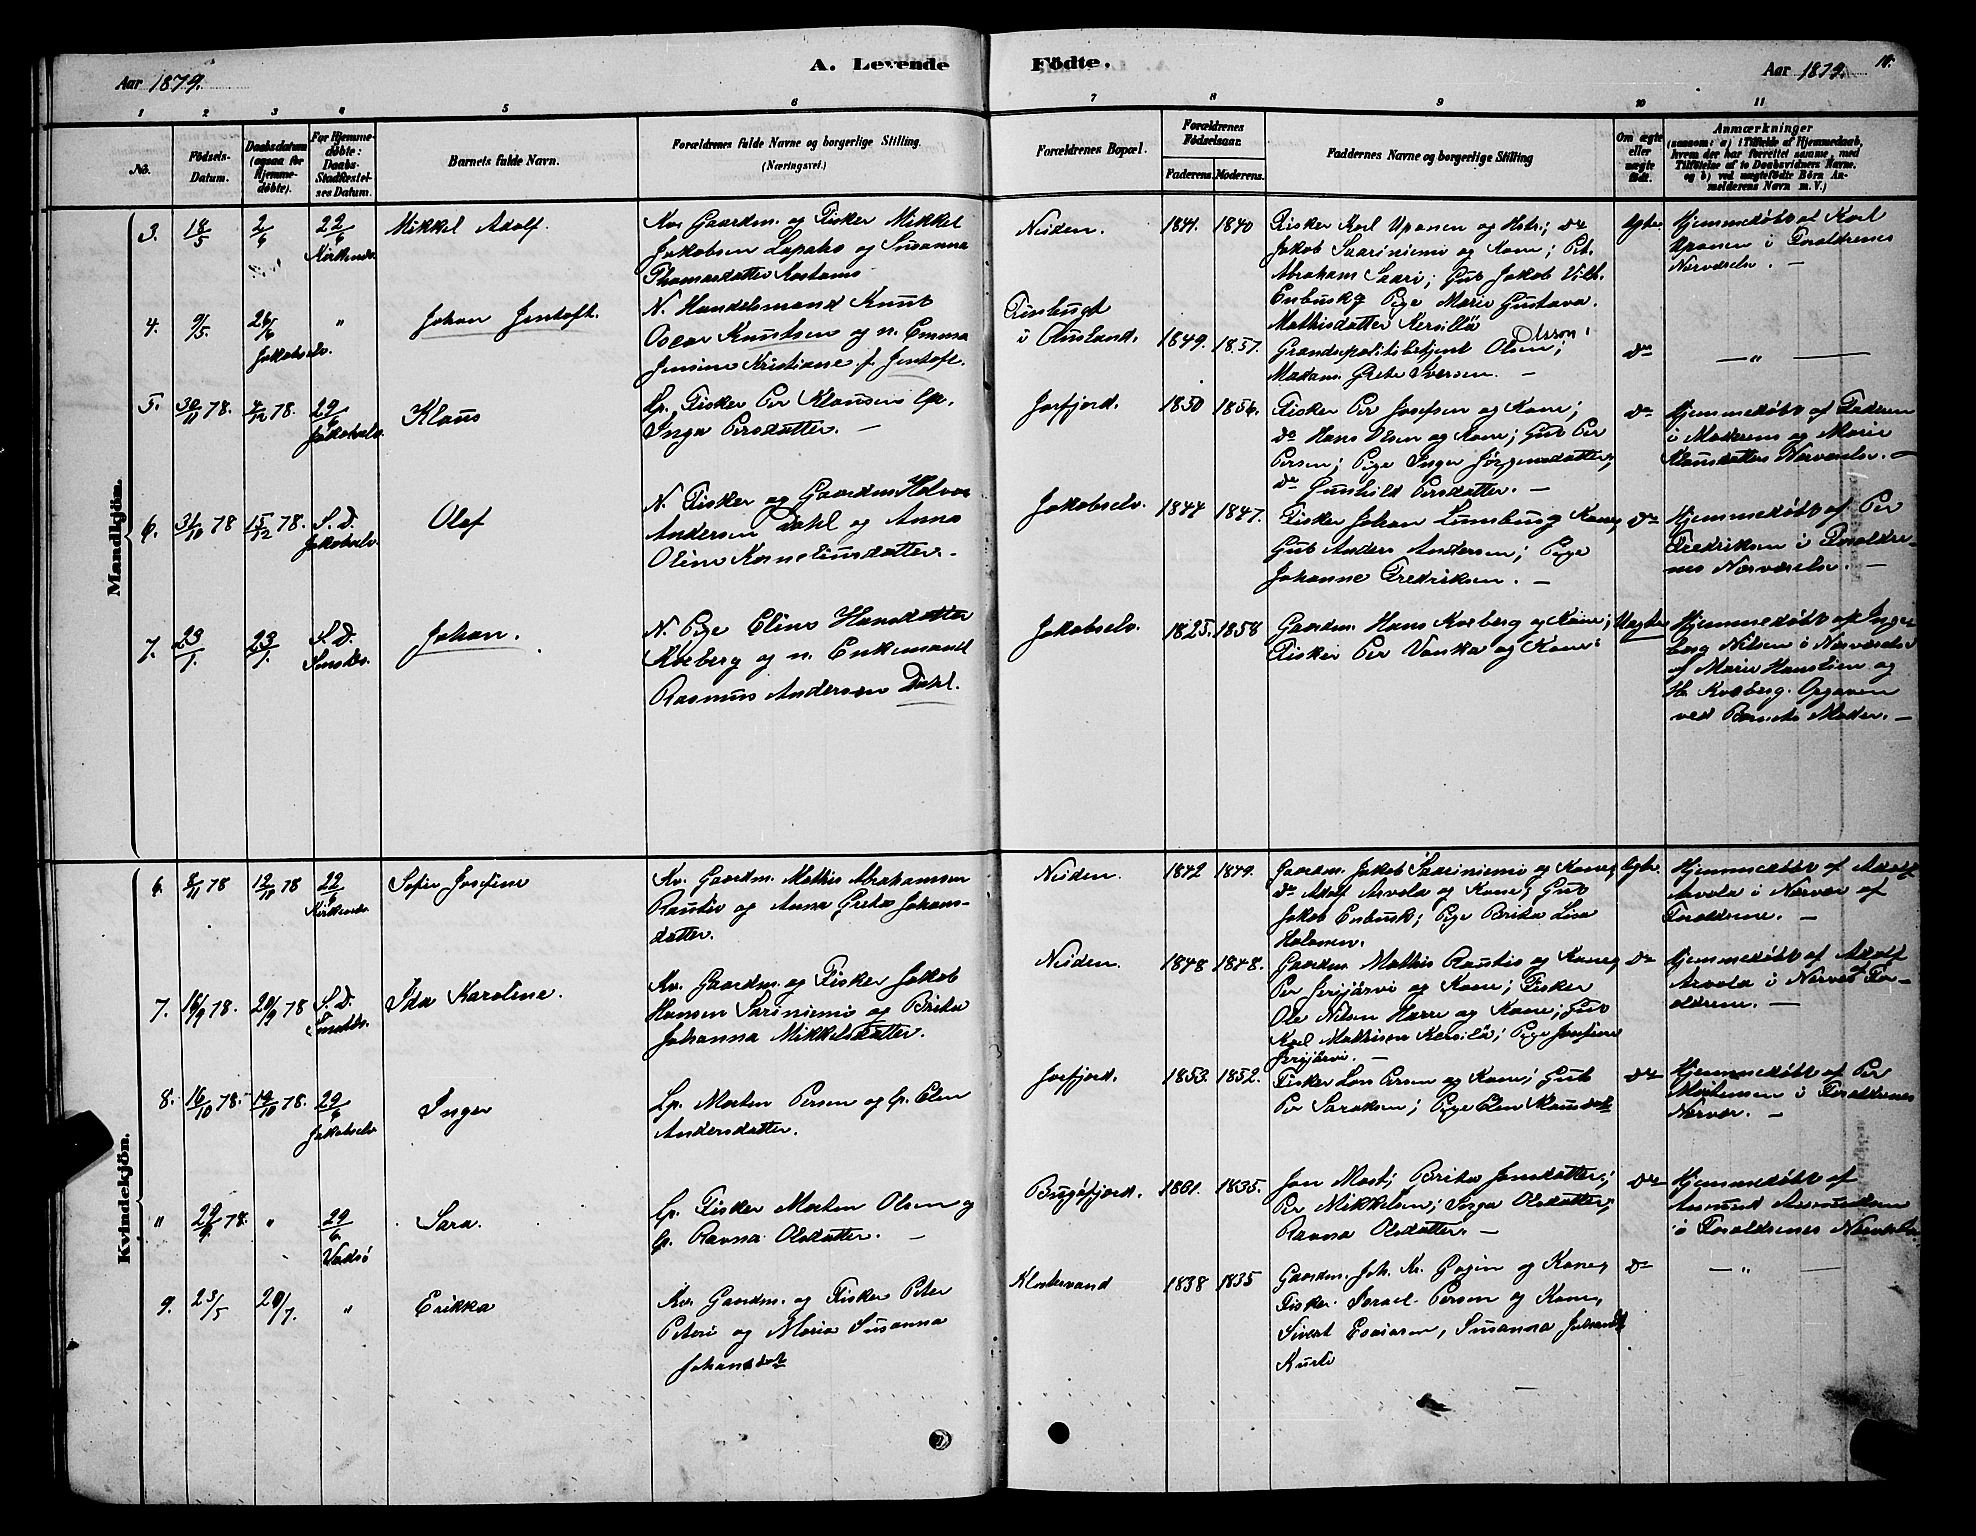 Aar 1879.
A. Levende Födte.
Aar 1879.
10.
1 2 3 4 5 6 7 8 9 10 11
No.
Födsels-
Datum.
Daabsdatum
(ogsaa for
Hjemme-
døbte).
For Hjemme-
døbte:
Daabs-
Stadfæstel-
ses Datum.
Barnets fulde Navn.
Forældrenes fulde Navne og borgerlige Stilling.
(Næringsvei.)
Forældrenes Bopæl.
Forældrenes
Fødselsaar.
Faderens. Moderens.
Faddernes Navne og borgerlige Stilling
Om ægte
eller
uægte
født.
Anmærkninger
(saasom: a) i Tilfælde af Hjemmedaab,
hvem der har forrettet samme, med
Tilføielse af to Daabsvidners Navne,
og b) ved uægtefødte Börn An-
melderens Navn m. V.)
Mandkjön.
3. 18/5 2/6 22/6
Kirkenæs
Mikkel Adolf.
Kv. Gaardm. og Fisker Mikkel
Jakobsen Lapaho og Susanna
Thomasdatter
Neiden.
1841. 1840
Fisker Karl Uponen og Hstr.; do
Jakob Saariniemi og Kone; P.
Abraham Saari; Gut Jakob Vilh.
Enbusk; Pige Marie Gustava
Mathisdatter Kersillä
Ægte
Hjemmedøbt af Karl
Uponen i Forældrenes
Nærværelse. —
4. 9/5 26/6
Jakobselv.
"
Johan Jentoft.
N. Handelsmand Knut
Oscar Knutsen og n. Emma
Jensine Kristiane f. Jentoft.
Finbugt
i Rusland.
1849. 1857.
Grændsepolitibetjent Olsen;
Olsson
Madam Grete Iversen. —
do
— " —
5. 30/11 78. 4/12 78. 29/6
Jakobselv
Klaus
Lp. Fisker Per Klausen Lp.
Inga Persdatter. —
Jarfjord.
1850 1856.
Fisker Per Josefsen og Kone;
do Hans Olsen og Kone; Gut Per
Persen; Pige Inger Jørgensdatter;
do Gunhild Persdatter. —
do
Hjemmedøbt af Faderen
i Moderens og Marie
Klausdatters Nærværelse. —
6. 31/10 78 15/12 78. S. D.
Jakobselv
Olaf
N. Fisker og Gaardm. Halvor
Andersen Dahl og Anna
Oline Korneliusdatter. —
Jakobselv.
1844 1847.
Fisker Johan Lunsburg Kone;
Gut Anders Andersen; Pige
Johanne Fredriksen. —
do
Hjemmedøbt af Per
Fredriksen i Forældre-
nes Nærværelse. —
7. 23/1. 23/1. S. D.
Johan.
N. Pige Eline Hansdatter
Kveberg og n. Enkemand
Rasmus Andersen Dahl.
Jakobselv.
1825. 1858
Gaardm. Hans Kveberg og Kone;
Fisker Per Vanka og Kone.
Uægte
Hjemmedøbt af Inge-
borg Nilsen i Nærværelse
af Marie Hansen og
H. Kveberg. Opgaven
ved Barnets Moder. —
Kvindekjön.
6. 8/11 78 12/11 78 22/6
Kirkenæs
Sofie Josefine
Kv. Gaardm. Mathis Abrahamsen
Rautio og Anna Greta Johans-
datter.
Neiden.
1842 1849.
Gaardm. Jakob Saariniemi og Kone;
do Adolf Arvola og Kone; Gut
Jakob Enbusk; Pige Brita Lisa
Halonen.
Ægte.
Hjemmedøbt af Adolf
Arvola i Nærvær af
Forældrene. —
7. 18/9 78. 20/9 78 S. D.
Ida Karoline.
Kv. Gaardm. og Fisker Jakob
Hansen Sariniemi og Brita
Johanna Mikkelsdatter.
Neiden.
1848 1848.
Gaardm. Mathis Rautio og Kone;
Per Jerijärvi og Kone; Fisker
Ole Nilsen Harre og Kone; Gut
Karl Mathisen Kersilä; Pige Josefine
Jerijärvi. —
do
Hjemmedøbt af Adolf
Arvola i Nærvær af For-
ældrene. —
8. 16/10 78. 19/10 78. 29/6
Jakobselv
Inger
Lp. Morten Persen og lp. Elen
Andersdatter.
Jarfjord.
1853. 1852.
Fisker Lars Persen og Kone; Gut
Per Saraksen; Pige Elen Klausdatt
do
Hjemmedøbt af Per
Mortensen i Forældrenes
Nærvær. —
" 78. " 29/6
Vadsö
Sara.
Lp. Fisker Morten Olsen og
lp. Ravna Olsdatter. —
Bugöfjord.
1861. 1835.
Jon Mort; Brita Jonsdatter;
Per Mikkelsen; Inga Olsdatter;
Ravna Olsdatter. —
do
Hjemmedøbt af
Asmund Asmundsen
i Forældrenes Nærværelse
9. 23/5 20/7 "
Erikka
Kv. Gaardm. og Fisker Peter
Peteri og Maria Susanna
Johansdat
Klostervand
1838 1835
Gaardm. Joh. Kr. Gogin og Kone,
Fisker Israel Persen og Kone,
Sivert Esaiasen, Susanna
do
— " —